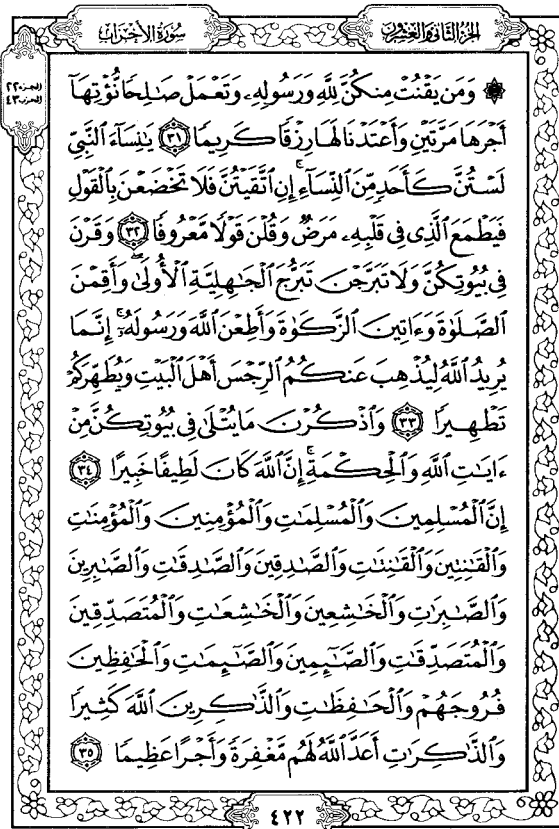 الجزء الثاني والعشرون
سُورَةُ الأَحْزَابِ
الجزء ٢٢
الحزب ٤٣
۞ وَمَن يَقْنُتْ مِنكُنَّ لِلَّهِ وَرَسُولِهِۦ وَتَعْمَلْ صَٰلِحًا نُّؤْتِهَآ
أَجْرَهَا مَرَّتَيْنِ وَأَعْتَدْنَا لَهَا رِزْقًا كَرِيمًا ٣١ يَٰنِسَآءَ ٱلنَّبِىِّ
لَسْتُنَّ كَأَحَدٍ مِّنَ ٱلنِّسَآءِ ۚ إِنِ ٱتَّقَيْتُنَّ فَلَا تَخْضَعْنَ بِٱلْقَوْلِ
فَيَطْمَعَ ٱلَّذِى فِى قَلْبِهِۦ مَرَضٌ وَقُلْنَ قَوْلًا مَّعْرُوفًا ٣٢ وَقَرْنَ
فِى بُيُوتِكُنَّ وَلَا تَبَرَّجْنَ تَبَرُّجَ ٱلْجَٰهِلِيَّةِ ٱلْأُولَىٰ ۖ وَأَقِمْنَ
ٱلصَّلَوٰةَ وَءَاتِينَ ٱلزَّكَوٰةَ وَأَطِعْنَ ٱللَّهَ وَرَسُولَهُۥٓ ۚ إِنَّمَا
يُرِيدُ ٱللَّهُ لِيُذْهِبَ عَنكُمُ ٱلرِّجْسَ أَهْلَ ٱلْبَيْتِ وَيُطَهِّرَكُمْ
تَطْهِيرًا ٣٣ وَٱذْكُرْنَ مَا يُتْلَىٰ فِى بُيُوتِكُنَّ مِنْ
ءَايَٰتِ ٱللَّهِ وَٱلْحِكْمَةِ ۚ إِنَّ ٱللَّهَ كَانَ لَطِيفًا خَبِيرًا ٣٤
إِنَّ ٱلْمُسْلِمِينَ وَٱلْمُسْلِمَٰتِ وَٱلْمُؤْمِنِينَ وَٱلْمُؤْمِنَٰتِ
وَٱلْقَٰنِتِينَ وَٱلْقَٰنِتَٰتِ وَٱلصَّٰدِقِينَ وَٱلصَّٰدِقَٰتِ وَٱلصَّٰبِرِينَ
وَٱلصَّٰبِرَٰتِ وَٱلْخَٰشِعِينَ وَٱلْخَٰشِعَٰتِ وَٱلْمُتَصَدِّقِينَ
وَٱلْمُتَصَدِّقَٰتِ وَٱلصَّٰٓئِمِينَ وَٱلصَّٰٓئِمَٰتِ وَٱلْحَٰفِظِينَ
فُرُوجَهُمْ وَٱلْحَٰفِظَٰتِ وَٱلذَّٰكِرِينَ ٱللَّهَ كَثِيرًا
وَٱلذَّٰكِرَٰتِ أَعَدَّ ٱللَّهُ لَهُم مَّغْفِرَةً وَأَجْرًا عَظِيمًا ٣٥
٤٢٢